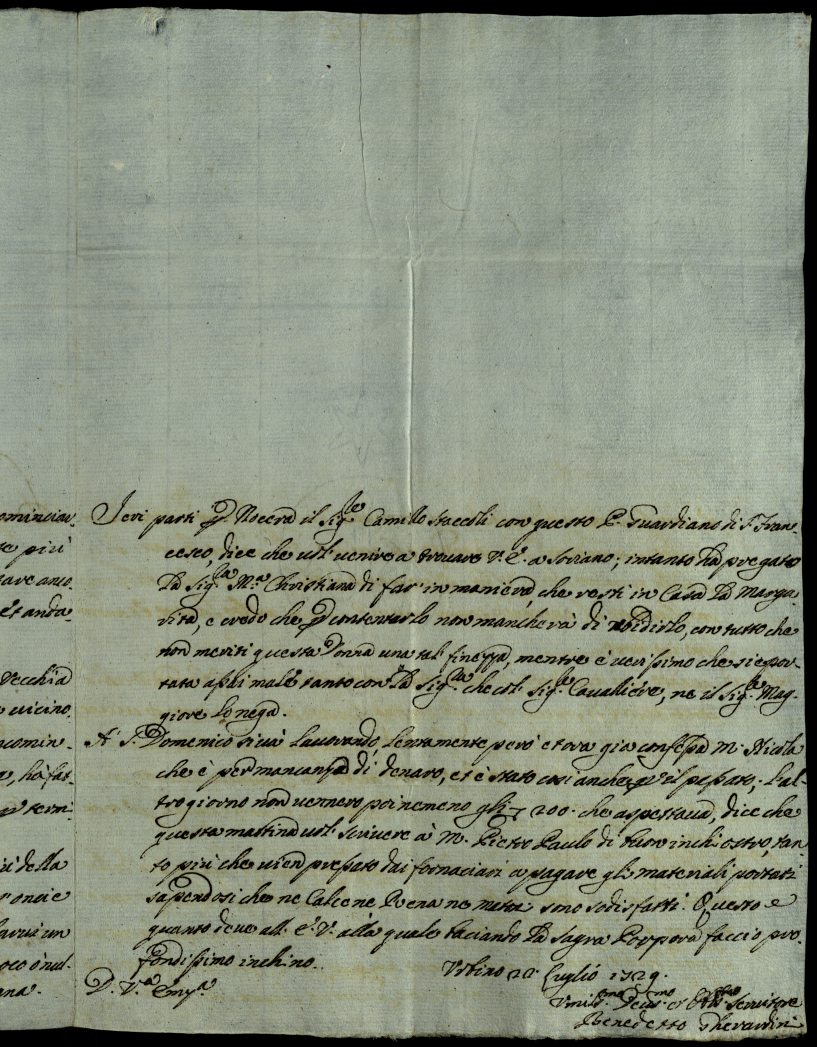 ominciar
te più
tare anco
et anda
vecchia
e vicino
comin-
e, hà fat-
termi-
ù della
oncie
un
oco ò nul-
ana.
Ieri partì p Nocera il Sig.re Camillo Staccoli con questo P. Guardiano di S. Fran-
cesco, dice che vol venire a trovare V. E. a Soriano; intanto hà pregato
la Sig.ra M.a Christiana di far in maniera, che resti in Casa la Marga-
rita, e credo che p contentarlo non mancherà di ubidirlo, con tutto che
non meriti questa Donna una tal finezza, mentre è verissimo che si è por-
tata assai male tanto con la Sig.ra che col Sig.re Cavalliere, ne il Sig.re Mag-
giore lo nega.
A S. Domenico si và lavorando, lentamente però e tora già confessa M. Nicola
che è per mancanza di denaro, et è stato così anche p il passato; l'al-
tro giorno non vennero poi nemeno gli 200 che aspettava, dice che
questa mattina vol scrivere a M. Pietro Paulo di buon inchiostro, tan
to più che vien pressato dai fornaciari a pagare gli materiali portati
sapendosi che ne Calce ne Rena ne mattoni sono sodisfatti. Questo è
quanto deve all' E. V. alla quale baciando la Sagra Porpora faccio pro-
fondissimo inchino.
Urbino 22 Luglio 1729.
D. V.ra Em.za
Umil.mo Dev.mo et Obb.mo Servitore
Benedetto Gherardini